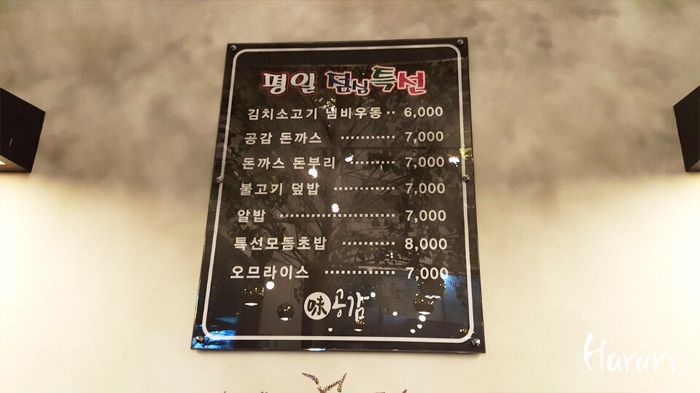 평일 점심특선
김치소고기 냄비우동 ·· 6,000
공감 돈까스 ··········· 7,000
돈까스 돈부리 ········ 7,000
불고기 덮밥 ··········· 7,000
알밥 ····················· 7,000
특선모둠초밥 ········· 8,000
오므라이스 ············ 7,000
味 공감
Harari